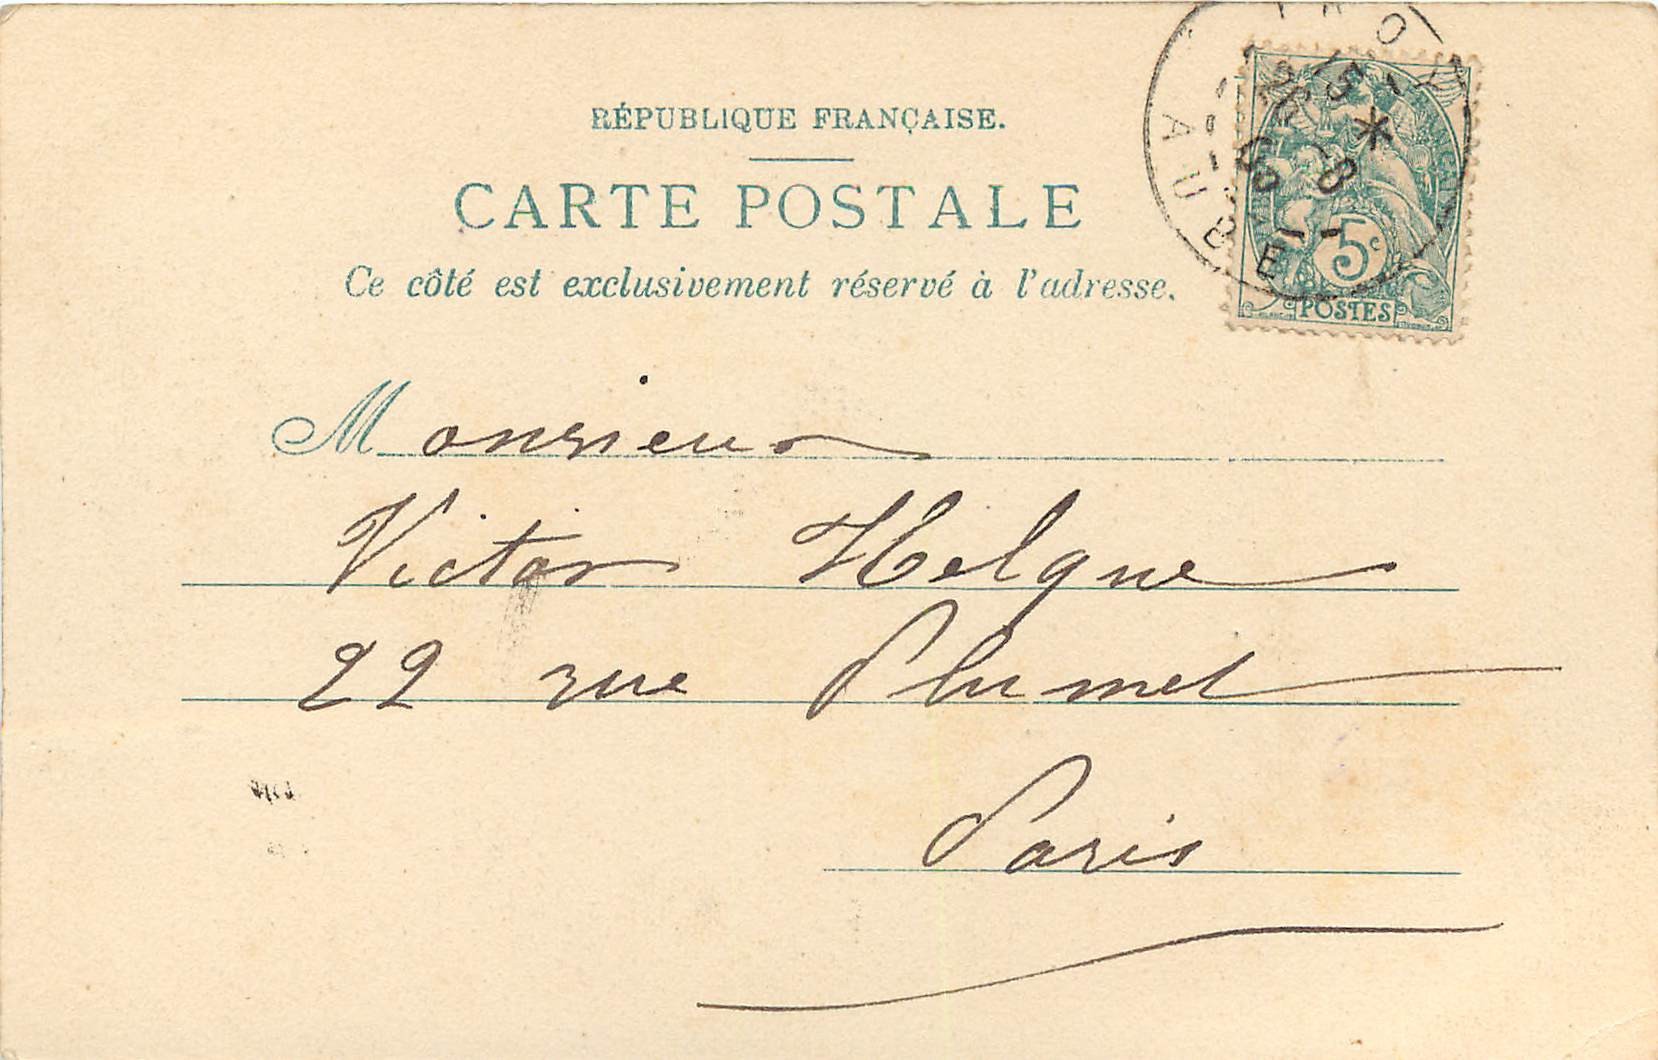 RÉPUBLIQUE FRANÇAISE.
CARTE POSTALE
Ce côté est exclusivement réservé à l'adresse.
TROYES
AUBE
5c
POSTES
Monsieur
Victor Helque
22 rue Plumet
Paris